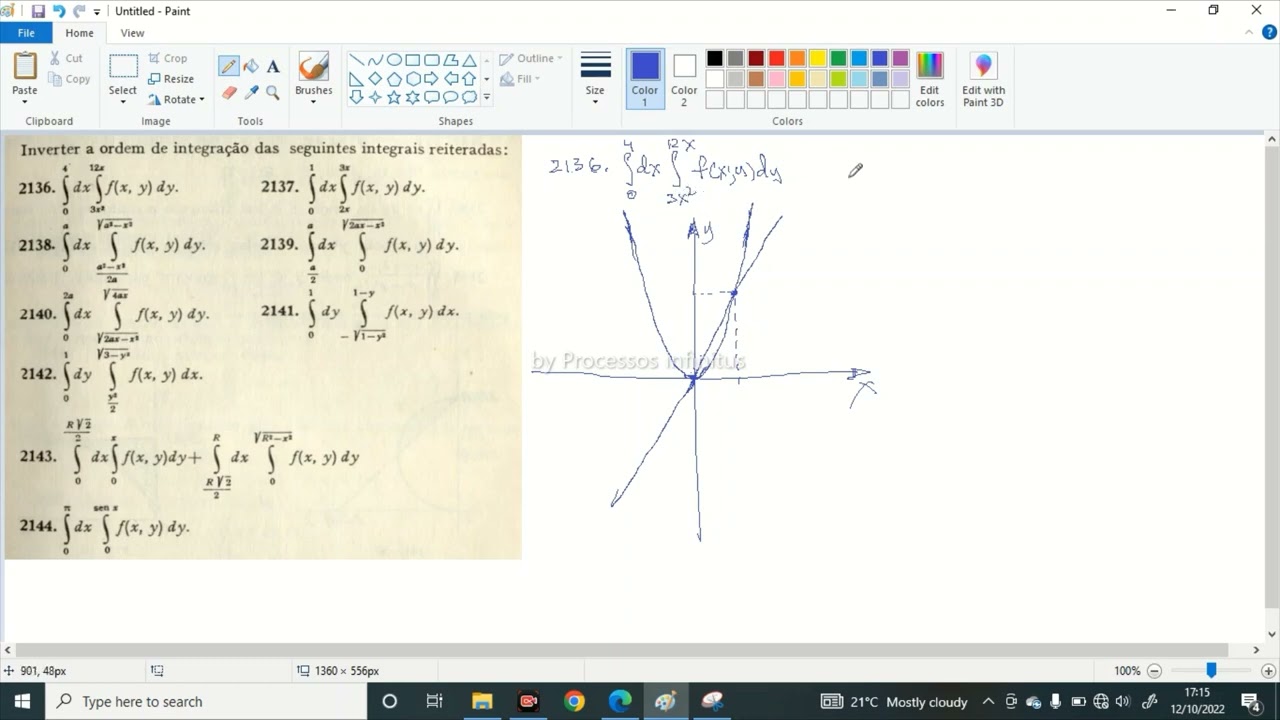 Untitled - Paint
File Home View
Paste Cut Copy Clipboard
Select Crop Resize Rotate Image
Tools
Brushes
Outline Fill Shapes
Size
Color 1 Color 2 Edit colors Edit with Paint 3D Colors
Inverter a ordem de integração das seguintes integrais reiteradas:
2136. ∫₀⁴ dx ∫_{3x²}^{12x} f(x, y) dy. 2137. ∫₀¹ dx ∫_{2x}^{3x} f(x, y) dy.
2138. ∫₀^a dx ∫_{(a²−x²)/2a}^{√(a²−x²)} f(x, y) dy. 2139. ∫_{a/2}^a dx ∫₀^{√(2ax−x²)} f(x, y) dy.
2140. ∫₀^{2a} dx ∫_{√(2ax−x²)}^{√(4ax)} f(x, y) dy. 2141. ∫₀¹ dy ∫_{−√(1−y²)}^{1−y} f(x, y) dx.
2142. ∫₀¹ dy ∫_{y²/2}^{√(3−y²)} f(x, y) dx.
2143. ∫₀^{R√2/2} dx ∫₀^x f(x, y) dy + ∫_{R√2/2}^R dx ∫₀^{√(R²−x²)} f(x, y) dy
2144. ∫₀^π dx ∫₀^{sen x} f(x, y) dy.
2136. ∫₀⁴ dx ∫_{3x²}^{12x} f(x;y) dy
y
by Processos Infinitus
x
901, 48px 1360 × 556px 100%
Type here to search
21°C Mostly cloudy
17:15
12/10/2022
4